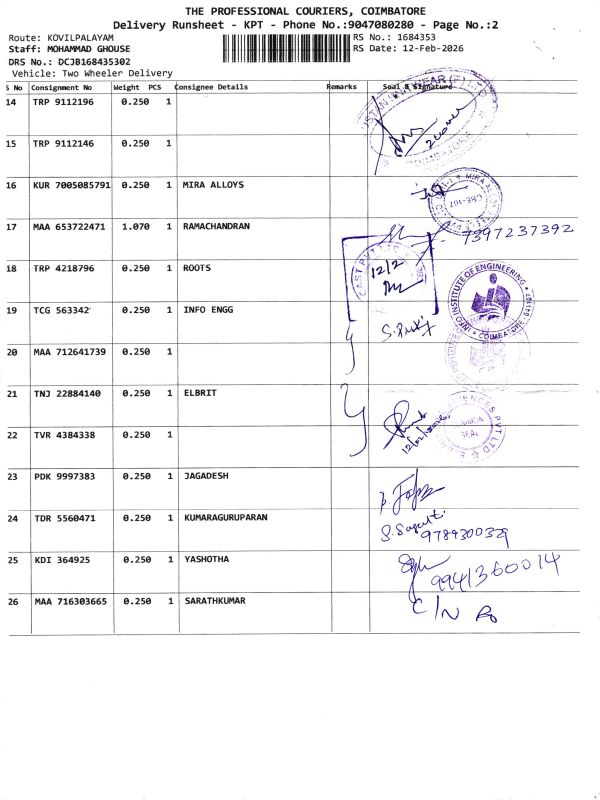 THE PROFESSIONAL COURIERS, COIMBATORE
Delivery Runsheet - KPT - Phone No.:9047080280 - Page No.:2
Route: KOVILPALAYAM
RS No.: 1684353
Staff: MOHAMMAD GHOUSE
RS Date: 12-Feb-2026
DRS No.: DCJB168435302
Vehicle: Two Wheeler Delivery
S No Consignment No Weight PCS Consignee Details Remarks Seal & Signature
14 TRP 9112196 0.250 1
15 TRP 9112146 0.250 1
COIMBATORE
16 KUR 7005085791 0.250 1 MIRA ALLOYS
17 MAA 653722471 1.070 1 RAMACHANDRAN
7397237392
18 TRP 4218796 0.250 1 ROOTS
12/2
INFO INSTITUTE OF ENGINEERING
COIMBATORE
19 TCG 563342 0.250 1 INFO ENGG
20 MAA 712641739 0.250 1
21 TNJ 22884140 0.250 1 ELBRIT
22 TVR 4384338 0.250 1
SEAL
23 PDK 9997383 0.250 1 JAGADESH
24 TDR 5560471 0.250 1 KUMARAGURUPARAN
25 KDI 364925 0.250 1 YASHOTHA
9941360014
26 MAA 716303665 0.250 1 SARATHKUMAR
C/N